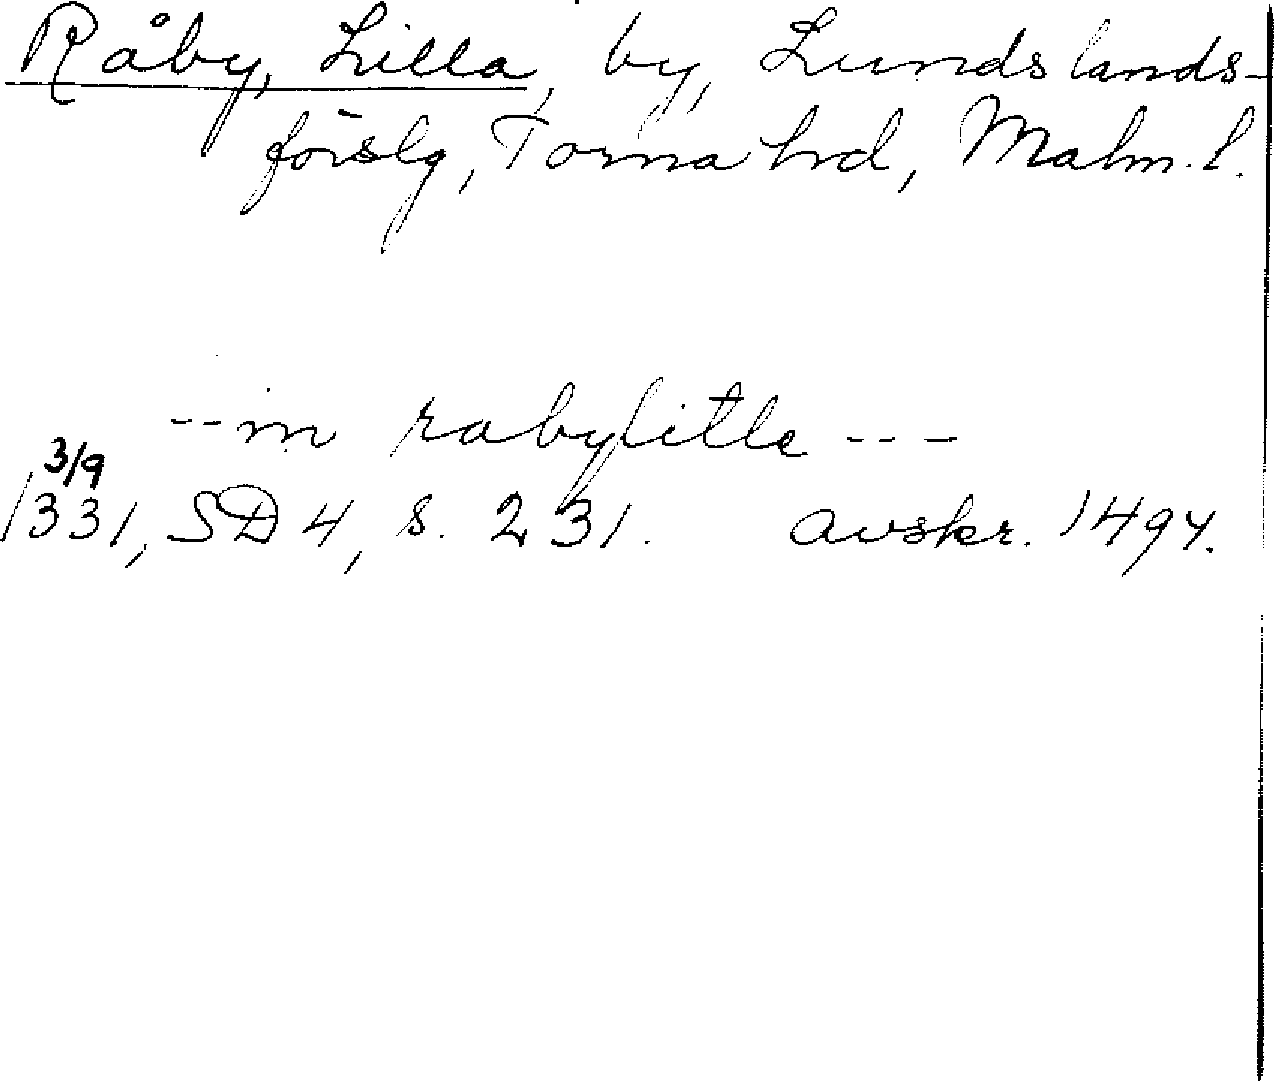 Råby, Lilla, by, Lunds lands-
förslg, Torna hrd, Malm. l.
--in rabylitle ---
3/9
1331, SD 4, s. 231. avskr. 1494.